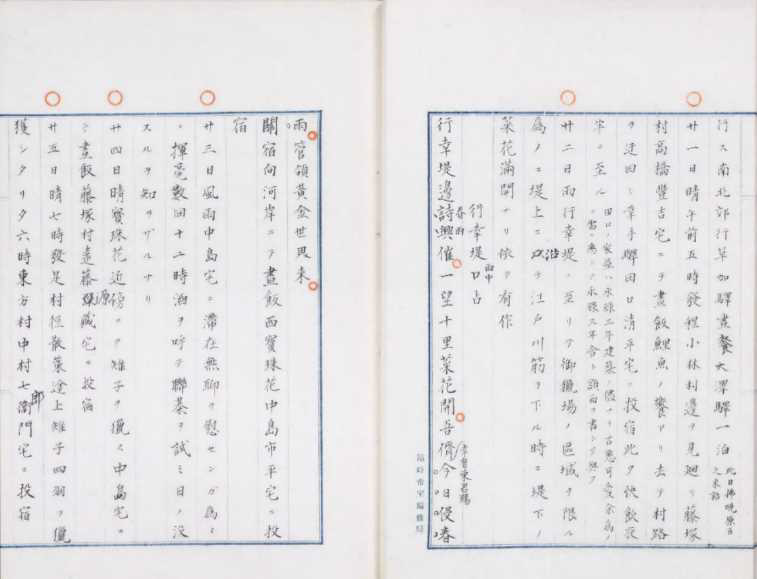 行ス南北郊行草加驛晝餐大澤驛一泊 此日拂晩原ヨ
廿一日晴午前五時發程小林村邊ヲ見廻リ藤塚
村高橋豐吉宅ニテ晝飯鯉魚ノ饗アリ去テ村路
ヲ迂回シ幸手驛田口清平宅ニ投宿此夕快飲夜
半ニ至ル 田口ノ家屋ハ永祿二年建築ノ儘ナリ古色可愛余為ノ
廿二日雨行幸堤ニ至リテ御獵場ノ區域ヲ限ル
為ノニ堤上ニ沿テ江戸川筋ヲ下ル時ニ堤下ノ
菜花滿開ナリ依テ有作
行幸堤口占 雨中
行幸堤邊詩興催一望十里菜花開吾儕今日喉春
雨管領黄金世界来
關宿向河岸ニテ晝飯西寶珠花中島市平宅ニ投
宿
廿三日風雨中島宅ニ滞在無聊ヲ慰センガ為ニ
揮毫數回十二時酒ヲ呼テ聯碁ヲ試ミ日ノ没
スルヲ知ラザルナリ
廿四日晴寶珠花近傍ニテ雉子ヲ獵ス中島宅ニ
テ晝飯藤塚村遠藤源藏宅ニ投宿
廿五日晴七時發足村徑散策途上雉子四羽ヲ獵
獲シタリ夕六時東方村中村七郎衛門宅ニ投宿